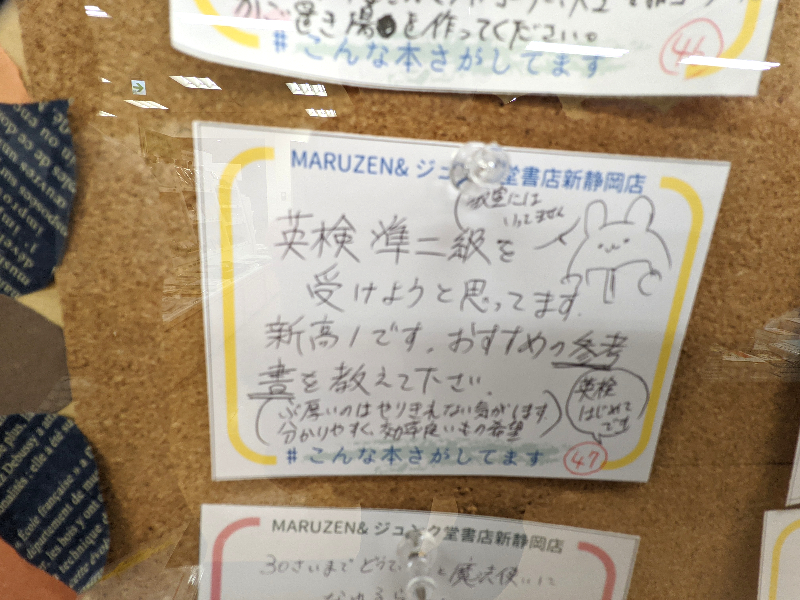 かご置き場を作ってください。
#こんな本さがしてます
46
MARUZEN& ジュンク堂書店新静岡店
教室には
いってません
英検 準二級を
受けようと思ってます.
新高1です。おすすめの参考
書を教えて下さい.
(ぶ厚いのはやりきれない気がします
分かりやすく、効率良いもの希望)
英検
はじめて
です
#こんな本さがしてます
47
MARUZEN& ジュンク堂書店新静岡店
30さいまでどうてい と魔法使いに